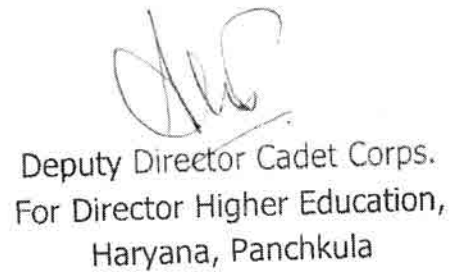 Deputy Director Cadet Corps.
For Director Higher Education,
Haryana, Panchkula